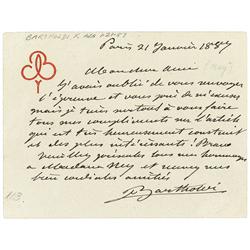 BARTHOLDI, F.
Paris 21 Janvier 1887
Mon cher ami
J'avais oublié de vous renvoyer
l'épreuve et vous prie de m'excuser
mais je tiens surtout à vous faire
tous mes compliments sur l'article
qui est très heureusement construit
et des plus intéressants! Bravo
veuillez présenter tous mes hommages
à Madame Ney et recevez mes
bien cordiales amitiés
Bartholdi
113